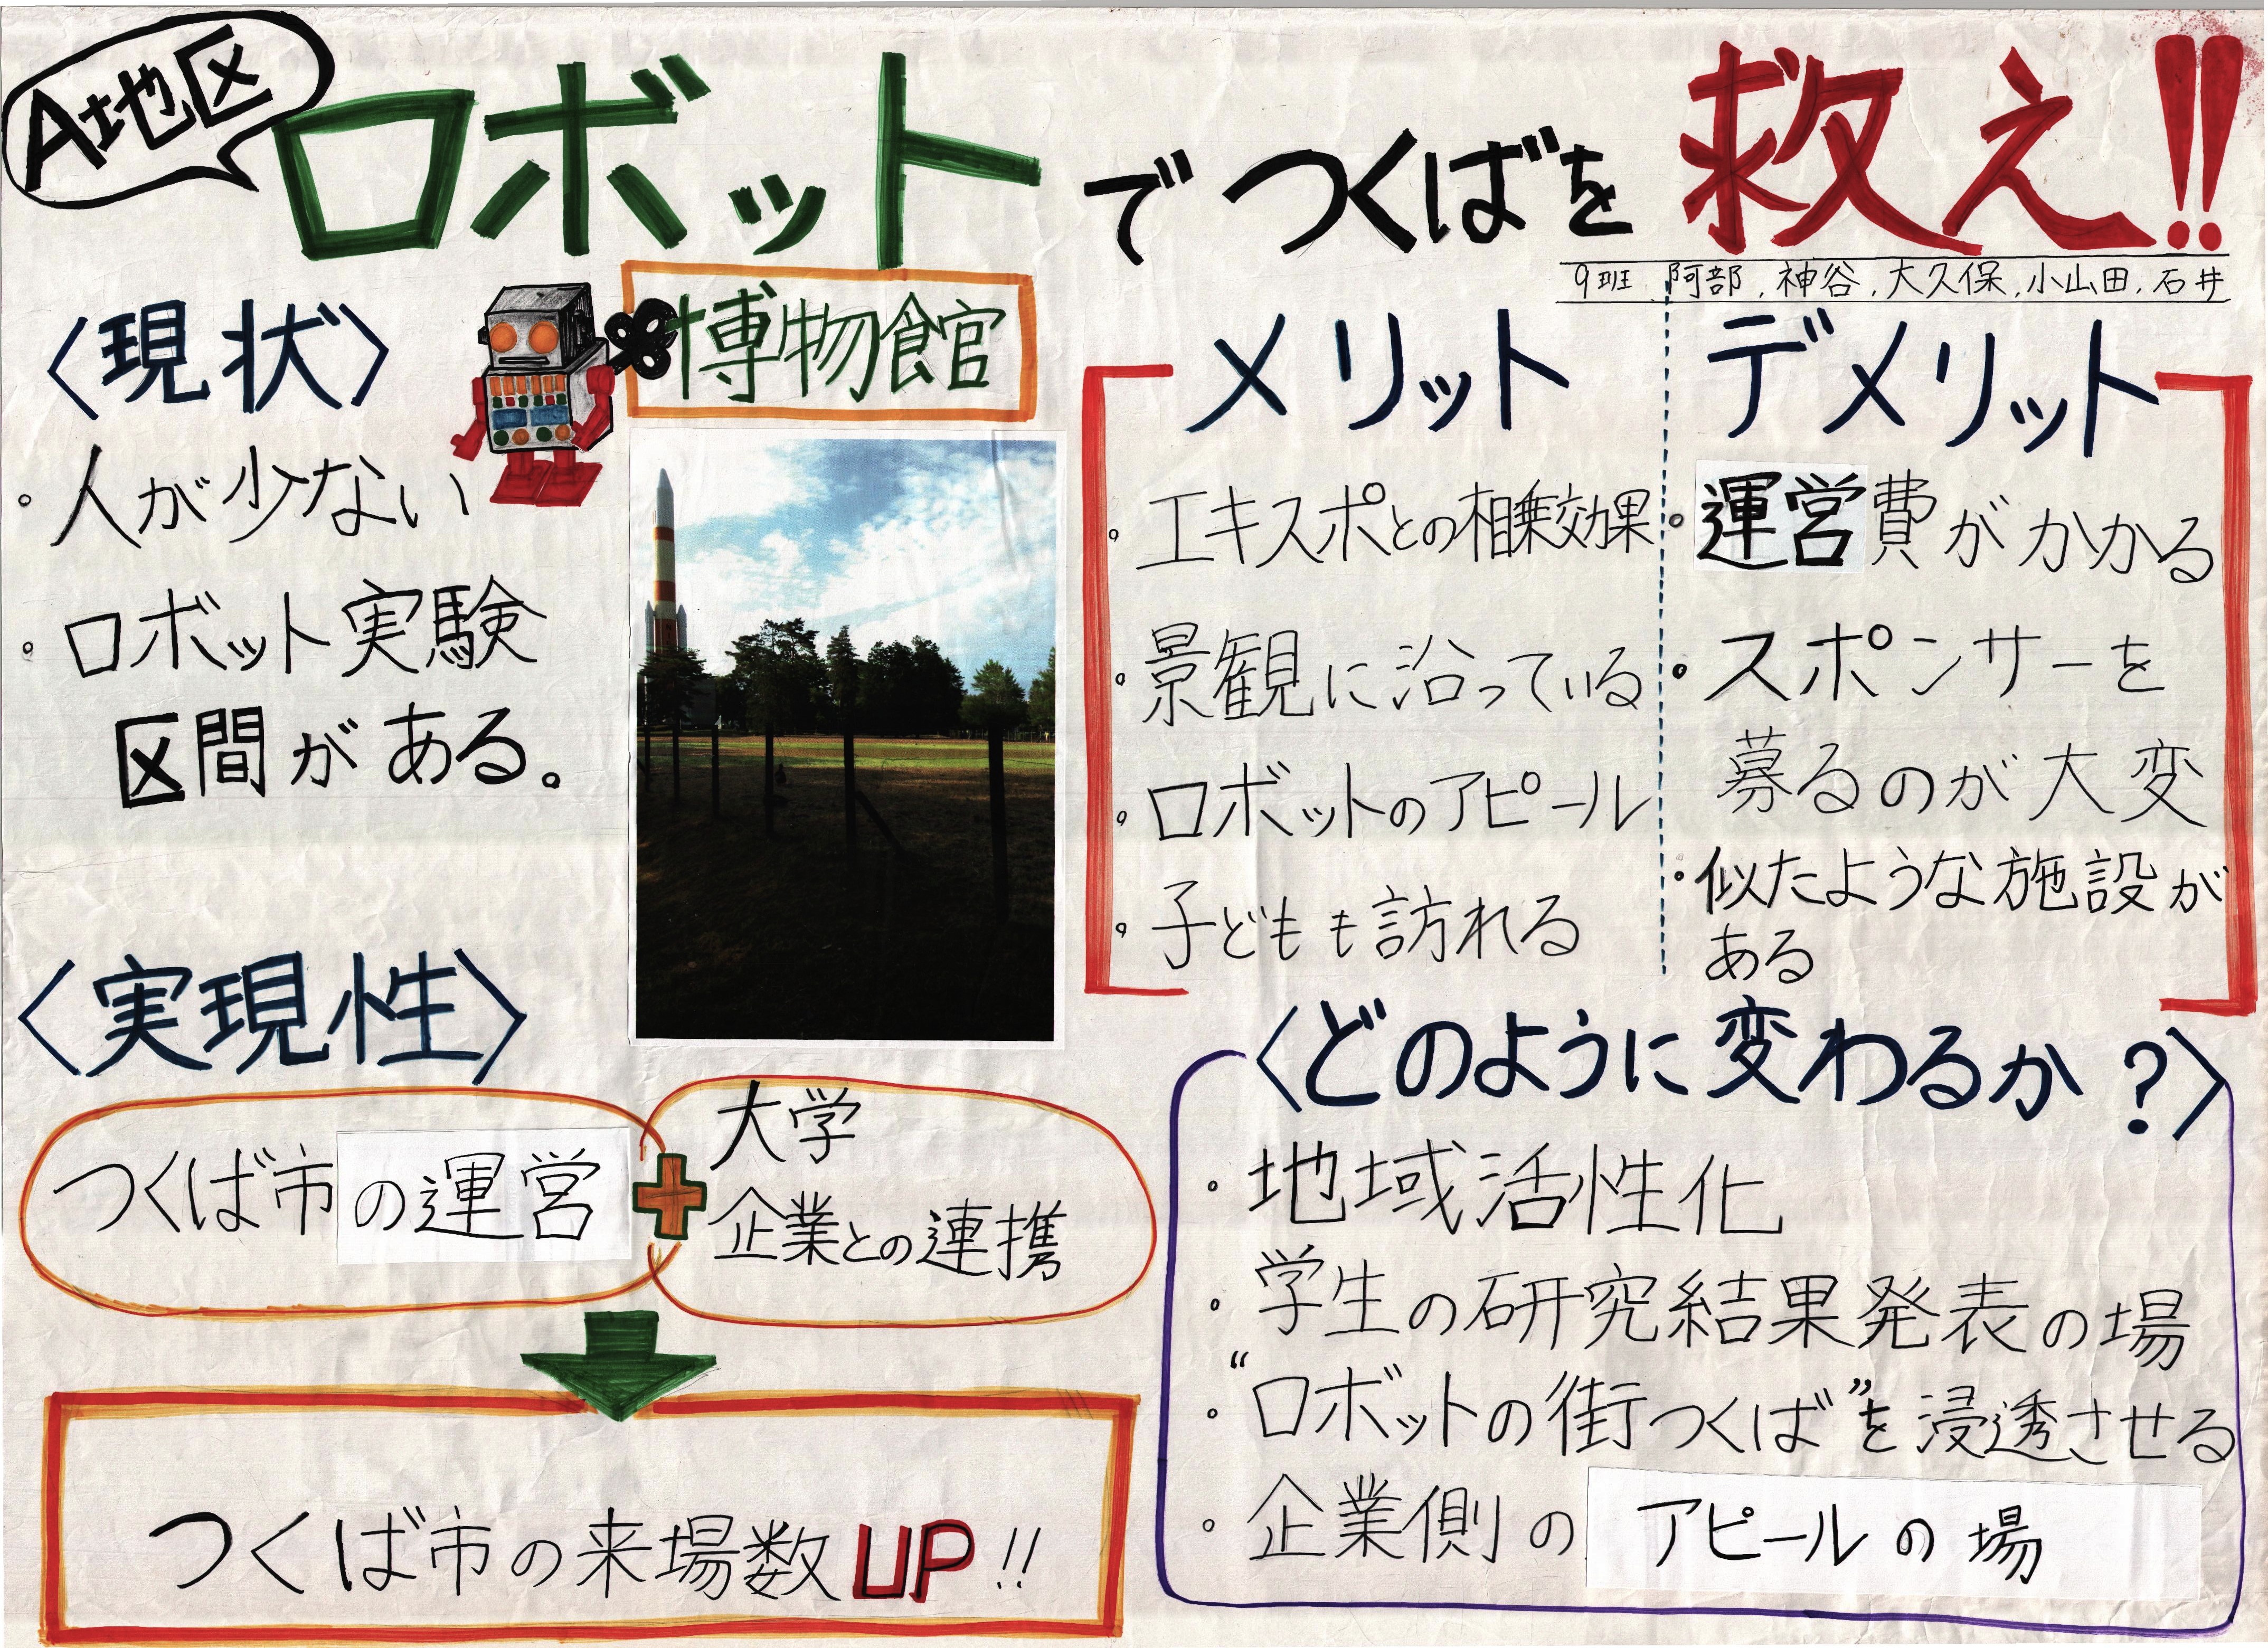 A地区
ロボットでつくばを救え!!
9班 阿部、神谷、大久保、小山田、石井
〈現状〉
・人が少ない
・ロボット実験
区間がある。
博物館
メリット
・エキスポとの相乗効果
・景観に沿っている
・ロボットのアピール
・子どもも訪れる
デメリット
・運営費がかかる
・スポンサーを
募るのが大変
・似たような施設が
ある
〈実現性〉
つくば市の運営
+
大学
企業との連携
つくば市の来場数UP!!
〈どのように変わるか?〉
・地域活性化
・学生の研究結果発表の場
・“ロボットの街つくば”を浸透させる
・企業側のアピールの場